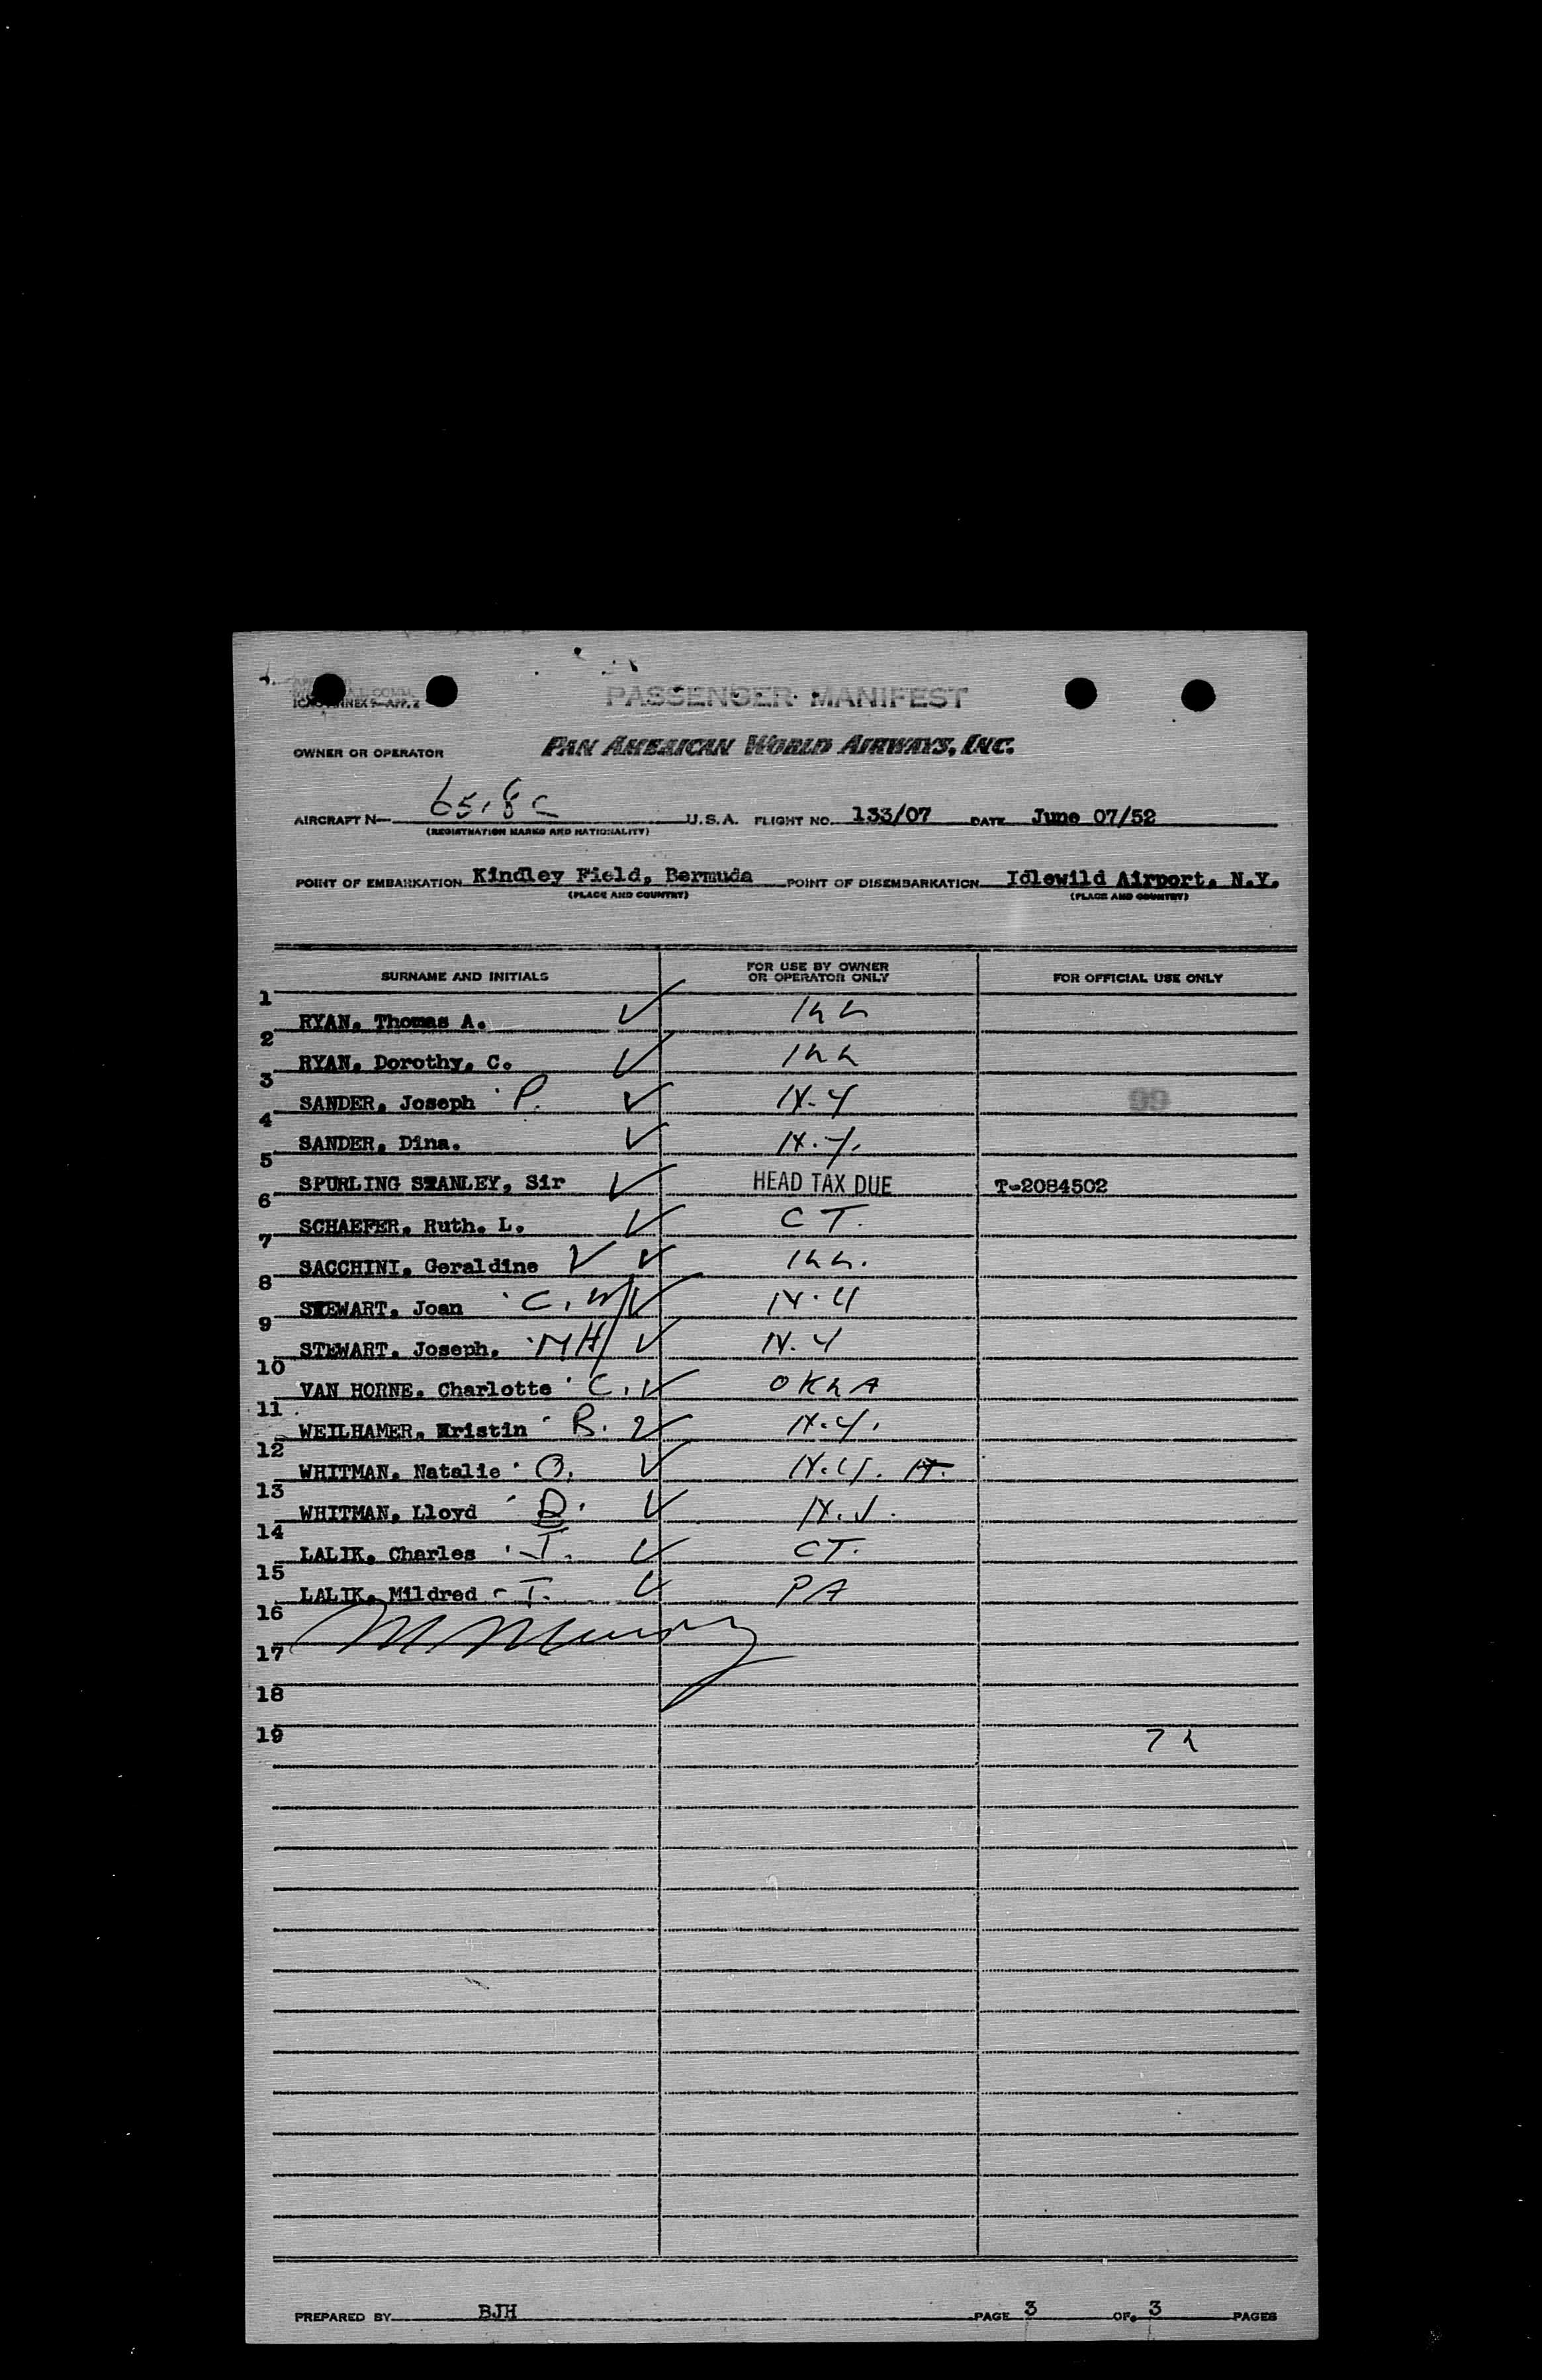 ICAO ANNEX 9—APP. 2
PASSENGER MANIFEST
OWNER OR OPERATOR PAN AMERICAN WORLD AIRWAYS, INC.
AIRCRAFT N— U.S.A. FLIGHT NO. 133/07 DATE June 07/52
(REGISTRATION MARKS AND NATIONALITY)
POINT OF EMBARKATION Kindley Field, Bermuda POINT OF DISEMBARKATION Idlewild Airport, N.Y.
(PLACE AND COUNTRY) (PLACE AND COUNTRY)
SURNAME AND INITIALS FOR USE BY OWNER OR OPERATOR ONLY FOR OFFICIAL USE ONLY
1 RYAN, Thomas A. ✓
2 RYAN, Dorothy, C. ✓
3 SANDER, Joseph P. ✓ N.Y 99
4 SANDER, Dina. ✓ N.Y.
5 SPURLING STANLEY, Sir ✓ HEAD TAX DUE T-2084502
6 SCHAEFER, Ruth. L. ✓ CT.
7 SACCHINI, Geraldine ✓ ✓
8 STEWART, Joan C. W ✓ N.Y
9 STEWART, Joseph. MH ✓ N.Y
10 VAN HORNE, Charlotte C. ✓ OKLA
11 WEILHAMER, Kristin B. ✓ N.Y.
12 WHITMAN, Natalie O. ✓ N.Y.
13 WHITMAN, Lloyd D. ✓ N.J.
14 LALIK, Charles J. ✓ CT.
15 LALIK, Mildred T. ✓ PA
16
17
18
19
PREPARED BY BJH PAGE 3 OF 3 PAGES